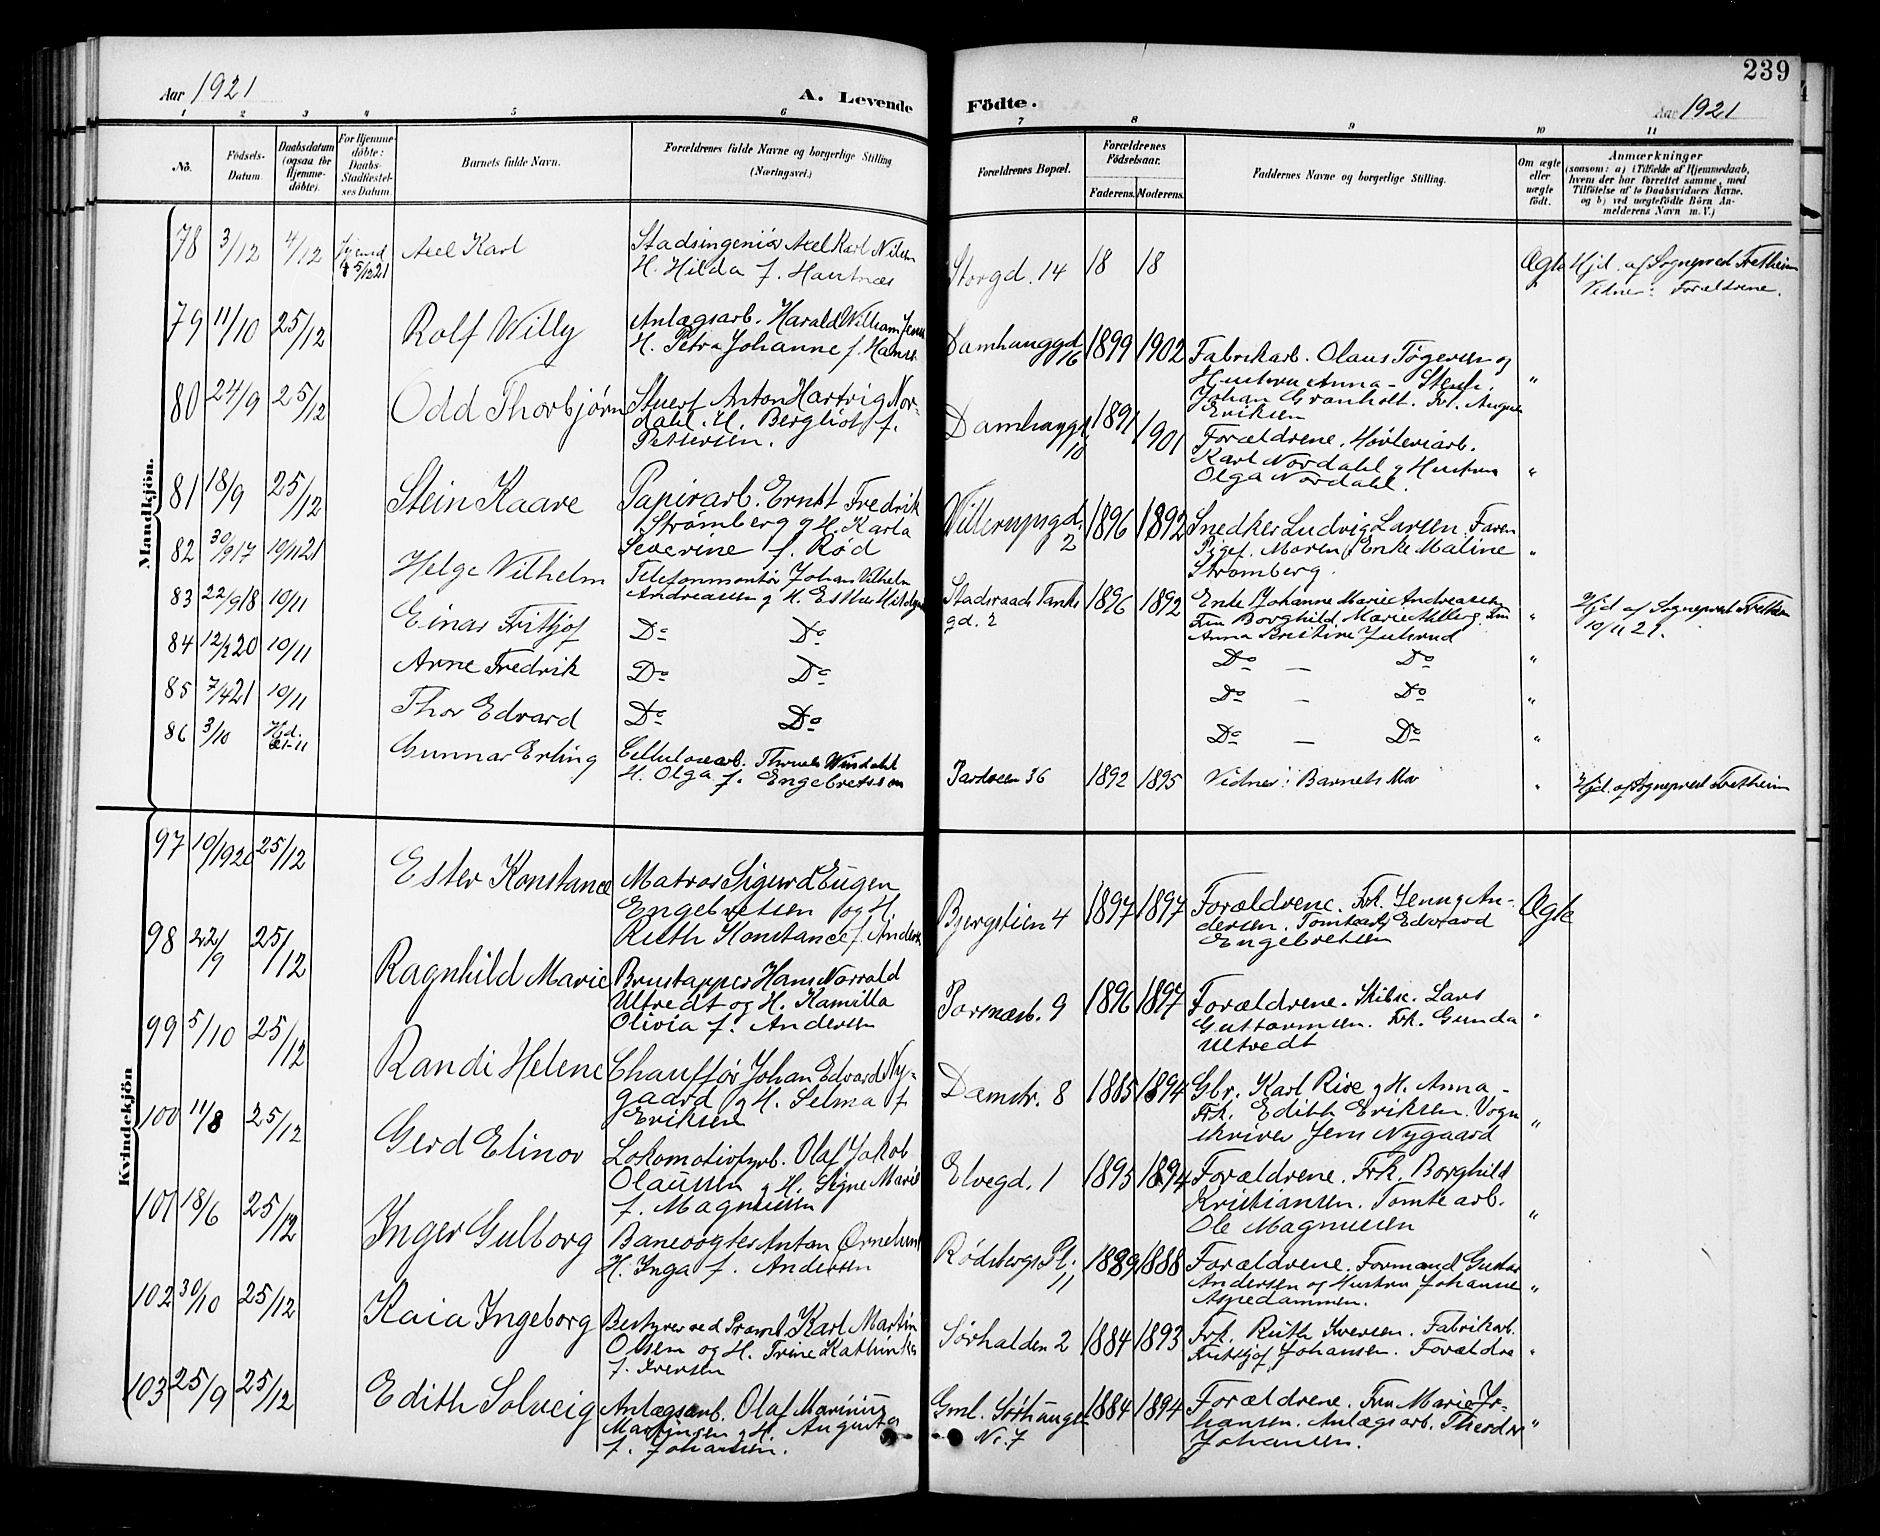 239
Aar 1921
A. Levende
Födte.
Aar 1921
1 2 3 4 5 6 7 8 9 10 11
No.
Födsels-
Datum.
Daabsdatum
(ogsaa for
Hjemme-
döbte).
For Hjemme-
döbte:
Daabs-
Stadfæstel-
ses Datum.
Barnets fulde Navn.
Forældrenes fulde Navne og borgerlige Stilling
(Næringsvei.)
Forældrenes Bopæl.
Forældrenes
Födselsaar.
Faderens.
Moderens.
Faddernes Navne og borgerlige Stilling.
Om ægte
eller
uægte
födt.
Anmærkninger
(saasom: a) i Tilfælde af Hjemmedaab,
hvem der har forrettet samme, med
Tilföielse af to Daabsvidners Navne,
og b) ved uægtefödte Börn An-
melderens Navn m. V.)
Mandkjön.
78 3/12 4/12
Axel Karl
Stadsingeniör Axel Karl Nilsen
H. Hilda f. Hautnæs
Storgd. 14
18 18
Ægte
Hjd. af Sognepræst Fretheim
Vidner: Forældrene.
79 11/10 25/12
Rolf Willy
Anlægsarb. Harald William
H. Petra Johanne f. Hans
Damhauggd. 16
1899 1902
Fabrikarb. Olaus Tögersen og
Hustru Anna - Stenh.
Johan Granholt. Frk. Augusta
Eriksen
"
80 24/9 25/12
Odd Thorbjörn
Stuert Anton Hartvig Nor-
dahl. H. Bergliot f.
Pettersen.
Damhauggd. 10
1891 1901
Forældrene. Hövleriarb.
Karl Nordahl og Hustru
Olga Nordahl.
"
81 18/9 25/12
Stein Kaare
Papirarb. Ernst Fredrik
Strömberg og H. Karla
Severine f. Röd
Willerupsgd. 2
1896 1892
Snedker Ludvig Larsen. Faren
Pigef. Maren. Enke Maline
Strömberg.
"
82 30/9 17 10/11 21
Helge Vilhelm
Telefonmontör Johan Vilhelm
Andreassen og H. Esther
Stadsraad Tanks
gd. 2
1896 1892
Enke Johanne Marie Andreassen
Fru Borghild Marie Ahlberg. Fru
Anna Kristine Julsrud
"
Hjd. af Sognepræst Fretheim
10/11 21.
83 22/9 18 10/11
Einar Fritjof
Do Do
Do — Do
"
84 12/2 20 10/11
Arne Fredrik
Do Do
Do — Do
"
85 7/4 21 10/11
Thor Edvard
Do Do
Do — Do
"
86 3/10 Hjd.
21-11
Gunnar Erling
Cellulosearb. Windahl
H. Olga f. Engebretsen
36
1892 1895
Vidner: Barnets Mor
"
Hjd. af Sognepræst Fretheim
Kvindekjön
97 10/1920 25/12
Ester Konstance
Matros Sigurd Eugen
Engebretsen og H.
Ruth Konstance f. Anders
Bjergstien 4
1897 1897
Forældrene. Frk. Jenny An-
dersen. Tomtearb. Edvard
Engebretsen
Ægte
98 22/9 25/12
Ragnhild Marie
Brustapper Hans Norvald
Ultvedt og H. Kamilla
Olivia f. Andersen
Porsnæsb. 9
1896 1897
Forældrene. Skibsc. Lars
Guttormsen. Frk. Gunda
Ultvedt
"
99 5/10 25/12
Randi Helene
Chaufför Johan Edvard Ny-
gaard og H. Selma f.
Eriksen
Damstr. 8
1885 1894
Gbr. Karl Rise og H. Anna -
Frk. Edith Eriksen. Vogn
skriver Jens Nygaard
"
100 11/8 25/12
Gerd Elinor
Lokomotivfyrb. Olaf Jakob
Olaussen og H. Signe Marie
f. Magnussen
Elvegd. 1
1895 1894
Forældrene. Frk. Borghild
Kristiansen. Tomtearb.
Ole Magnussen
"
101 18/6 25/12
Inger Gulborg
Banevogter Anton Örnelund
H. Inga f. Andersen
Rödsbergs Pl.
11
1889 1888
Forældrene. Formand Gustav
Andersen og Hustru Johanne
Aspedammen.
"
102 30/10 25/12
Kaia Ingeborg
Bestyrer ved Karl Martin
Olsen og H. Trine Kathinka
f. Iversen
Sörhalden 2
1884 1893
Frk. Ruth Iversen. Fabrikarb.
Fritjof Johansen. Forældre
"
103 25/9 25/12
Edith Solveig
Anlægsarb. Olaf Marinius
Martinsen og H. Augusta
f. Johansen.
Gml. Sörhaugen
No. 7
1884 1894
Forældrene. Fru Marie Jo-
hansen. Anlægsarb. Theodor
Johansen.
"